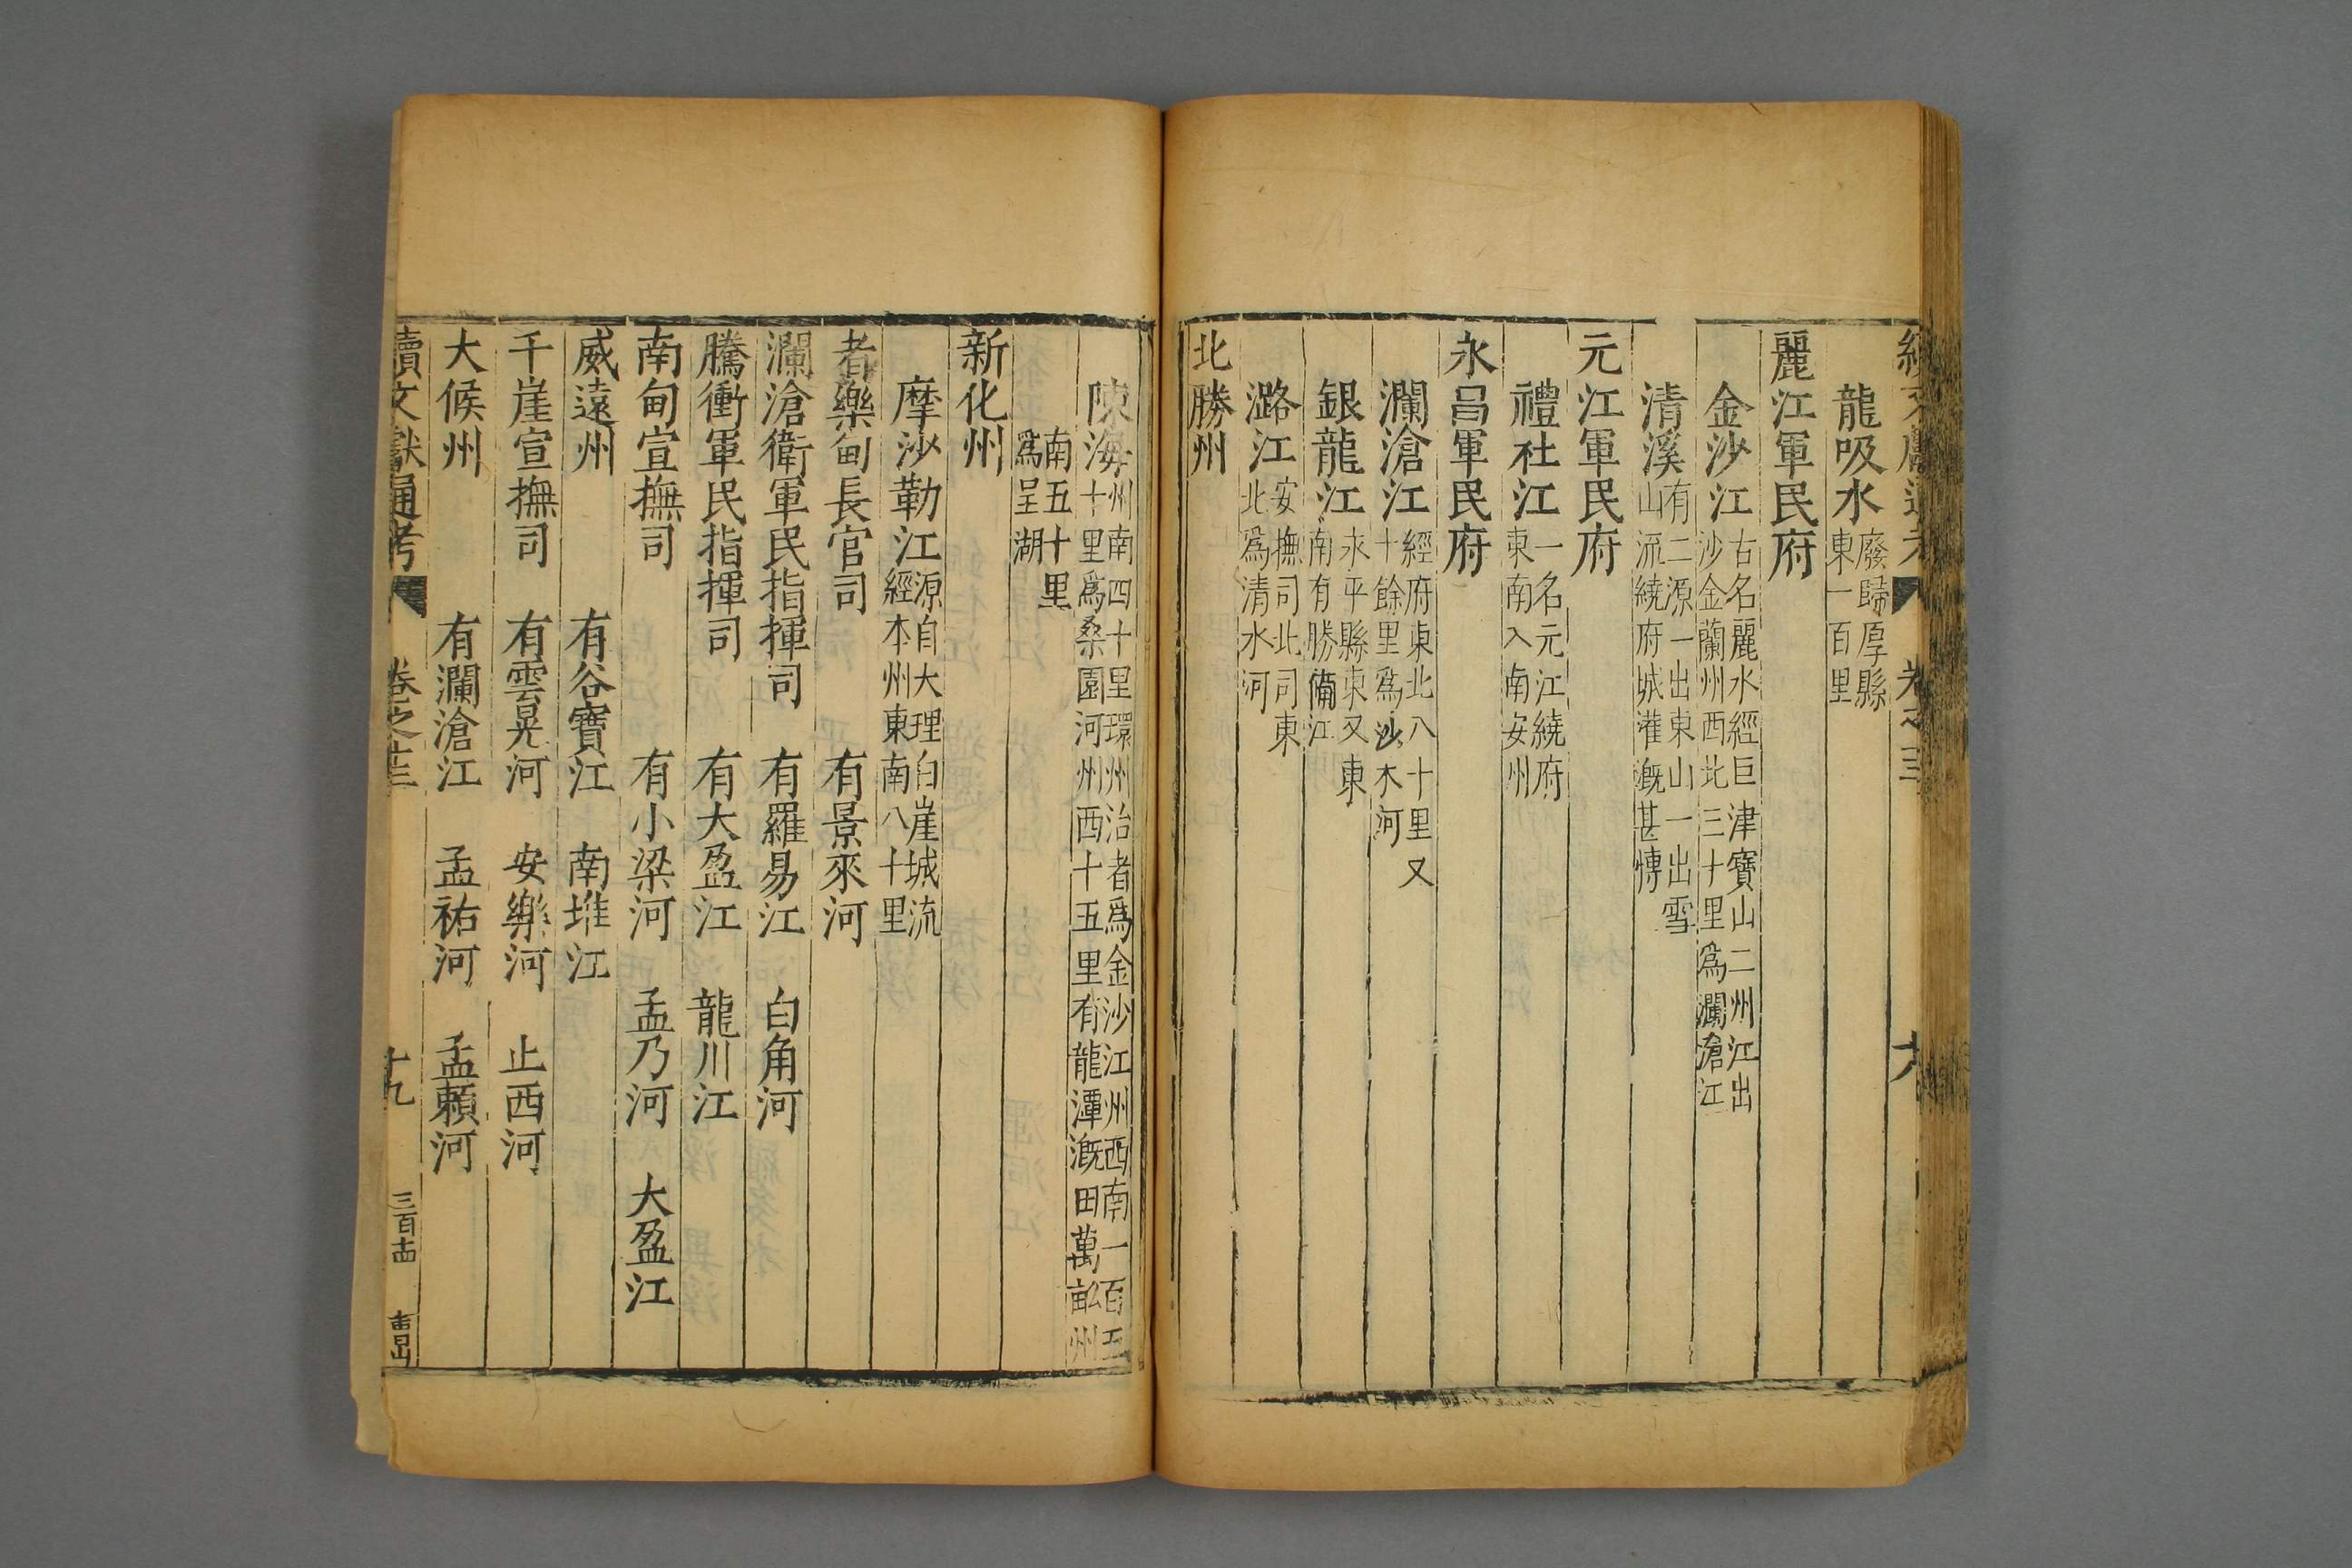 龍吸水廢歸厚縣東一百里
麗江軍民府
金沙江古名麗水經巨津寶山二州江出沙金蘭州西北三十里爲瀾滄江
清溪有二源一出東山一出雪山流繞府城灌漑甚愽
元江軍民府
禮社江一名元江繞府東南入南安州
永昌軍民府
瀾滄江經府東北八十里又十餘里爲沙木河
銀龍江永平縣東又東南有勝備江
潞江安撫司北司東北爲清水河
北勝州
陳海州南四十里環州治者爲金沙江州西南一百五十里爲桑園河州西十五里有龍潭漑田萬畝州
南五十里爲呈湖
新化州
摩沙勒江源自大理白崖城流經本州東南八十里
者樂甸長官司 有景來河
瀾滄衛軍民指揮司 有羅易江 白角河
騰衝軍民指揮司 有大盈江 龍川江
南甸宣撫司 有小梁河 孟乃河 大盈江
威遠州 有谷寶江 南堆江
千崖宣撫司 有雲晃河 安樂河 止西河
大候州 有瀾滄江 孟祐河 孟賴河
續文獻通考 卷之 十九 三百